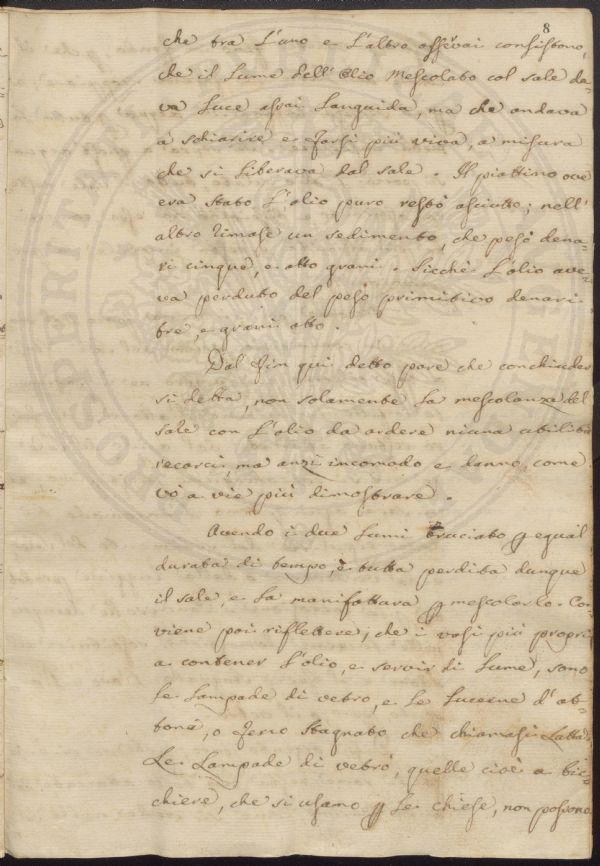 8
che tra l'uno e l'altro assévai consistono,
che il lume dell'olio mescolato col sale da-
va luce assai languida, ma che andava
à schiarire e farsi più viva, a misura
che si liberava dal sale. Il piattino ove
era stato l'olio puro restò asciutto; nell'
altro rimase un sedimento, che pesò dena-
ri cinque, e otto grani. Sicchè l'olio ave-
va perduto del peso primitivo denari
tre, e grani otto.
Dal fin qui detto pare che conchiuder
si debba, non solamente la mescolanza del
sale con l'olio da ardere niuna utilità
recarci, ma anzi incomodo e danno, come
vò a vie più dimostrare.
Avendo i due lumi bruciato p equal
durata di tempo, è tutta perdita dunque
il sale, e la manifattura p mescolarlo. Con-
viene poi riflettere, che i vasi più propri
a contener l'olio, e servir di lume, sono
le lampade di vetro, e le lucerne d'ot-
tone, o ferro stagnato che chiamasi Latta.
Le lampade di vetro, quelle cioè a bic-
chiere, che si usano p le chiese, non possono